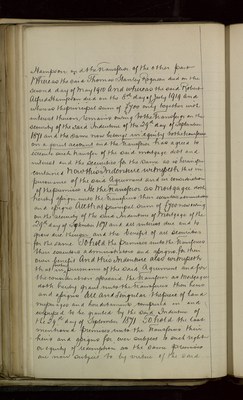 Hampson and the Transferor of the other part
Whereas the said Thomas Stanley Rogerson died on the
second day of May 1910 And whereas the said
Alfred Hampson died on the 8th day of July 1914 and
whereas the principal sum of £700 only together with
interest thereon remains owing to the Transferor on the
security of the said Indenture of the 29th day of September
1871 and the same now belongs in equity to the
on a joint account and the Transferor has agreed to
execute such transfer of the said mortgage debt and
interest and the securities for the same as is hereinafter
contained Now this Indenture witnesseth that in
pursuance of the said Agreement and in consideration
of the premises the Transferor as Mortgagee doth
hereby assign unto the Transferees their executors administrators
and assigns All that principal sum of £700 now owing
on the security of the said Indenture of Mortgage of the
29th day of September 1871 and all interest due and to
grow due thereon And the benefit of all securities
for the same To hold the Premises unto the Transferees
their executors administrators and assigns for their
own benefit And this Indenture also witnesseth
that in pursuance of the said Agreement and for
the consideration aforesaid the Transferor as Mortgagee
doth hereby grant unto the Transferees their heirs
and assigns All and Singular the piece of land
messuages and hereditaments comprised in and
expressed to be granted by the said Indenture of
the 29th day of September 1871 To hold the last
mentioned premises unto the Transferees their
heirs and assigns for ever subject to such right
or equity of redemption as the same premises
are now subject to by virtue of the said